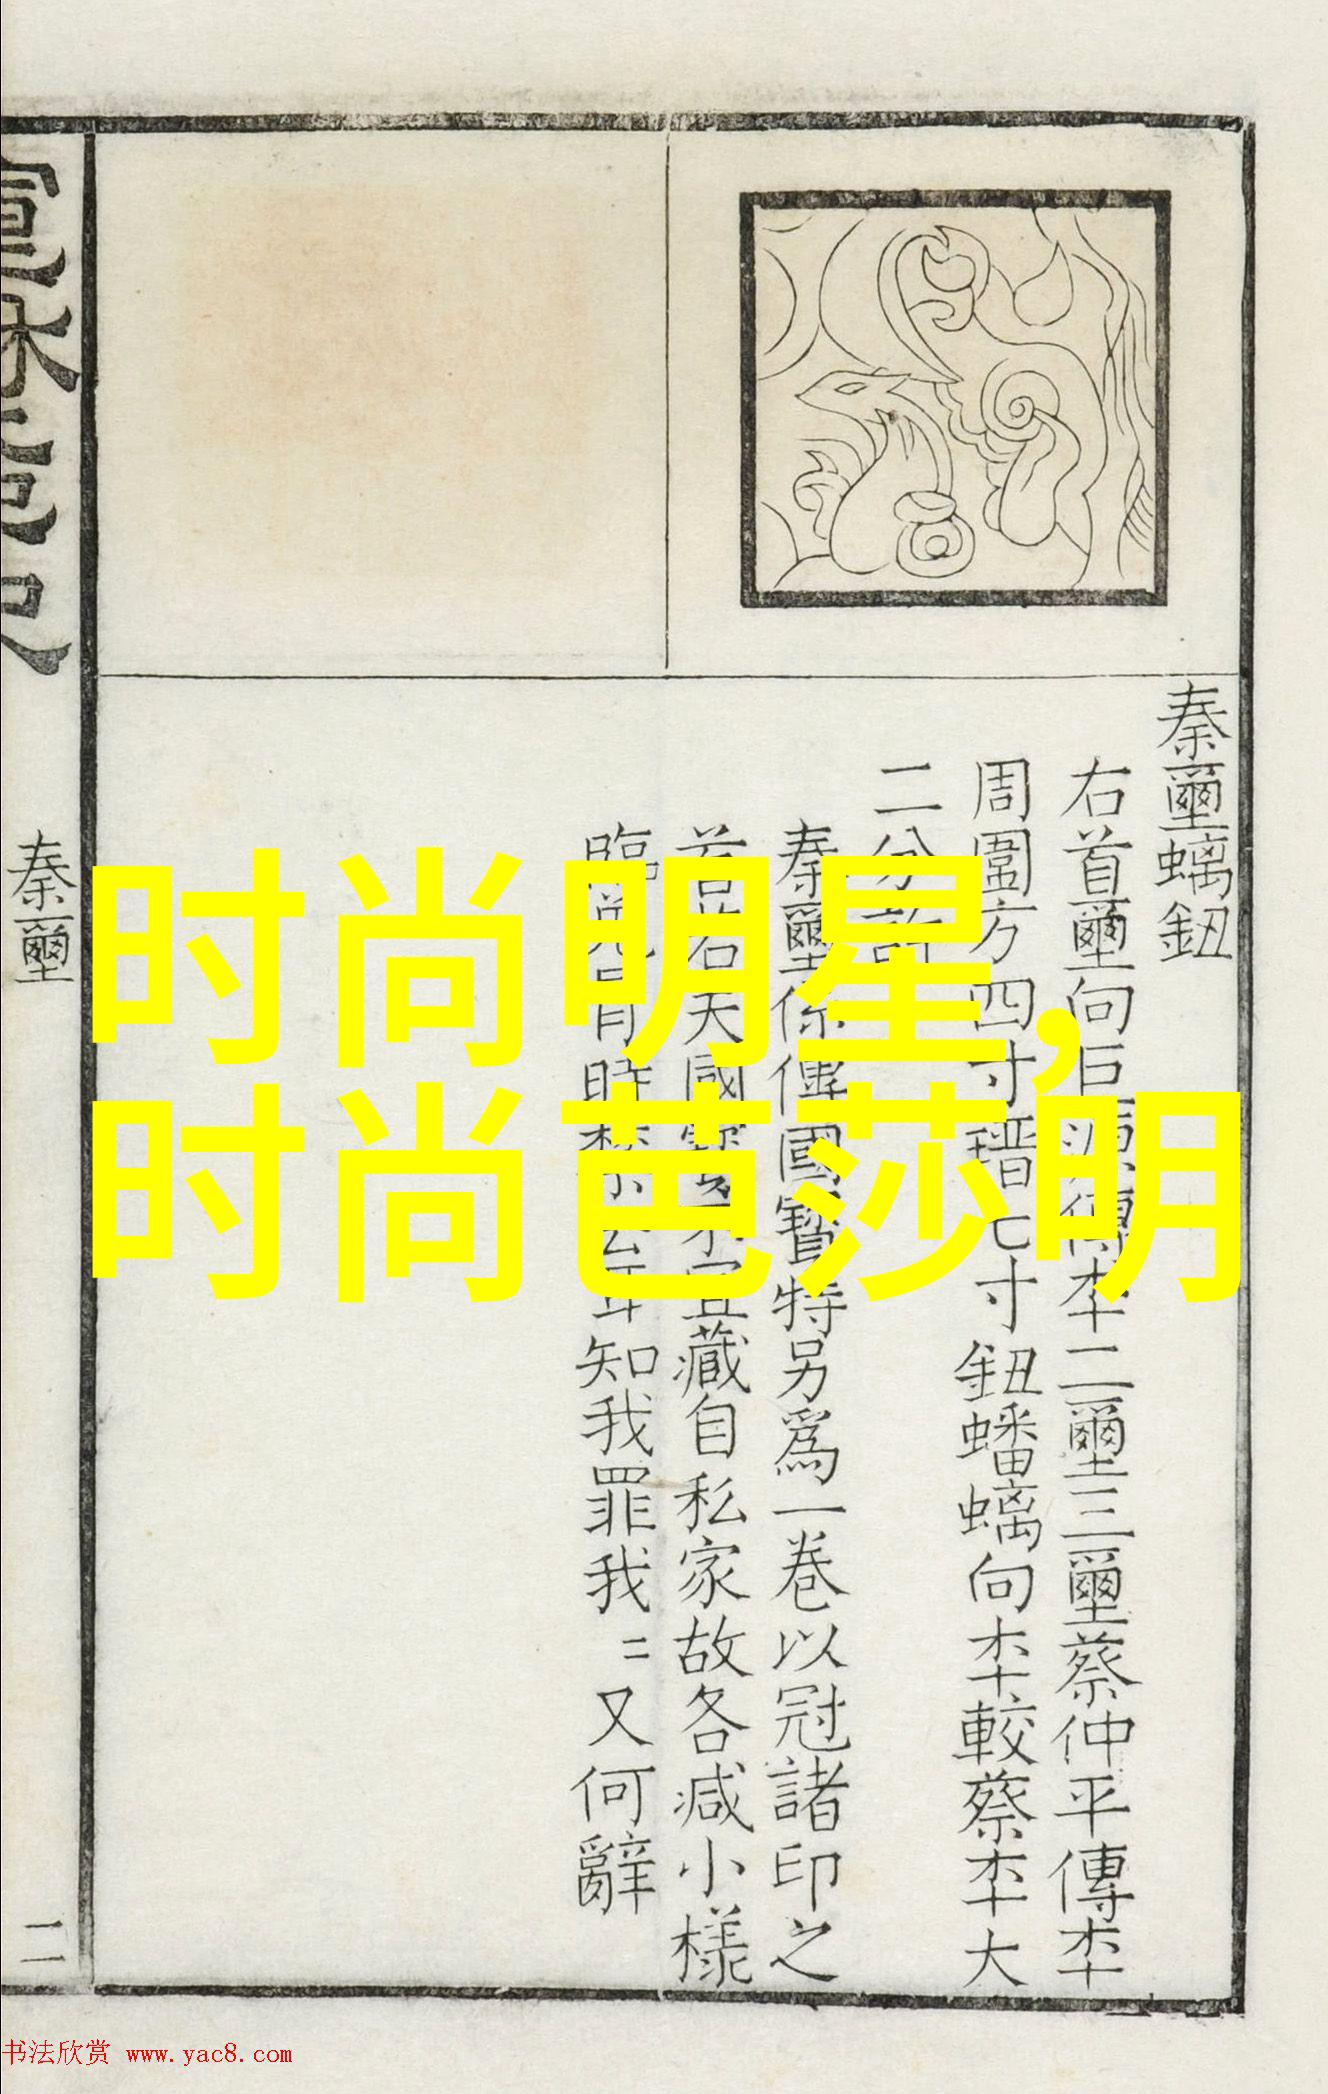 秦璽螭鈕
右首璽向巨源傳本二璽三璽蔡仲平傳本
周圍方四寸瑨七寸鈕蟠螭向本較蔡本大
二分許
秦璽係傳國寶特另爲一卷以冠諸印之
首
天國
藏自私家故各減小樣
臨
時禁
知我罪我〻又何辭
秦璽
二
时尚明星,
时尚芭莎明
书法欣赏 www.yac8.com